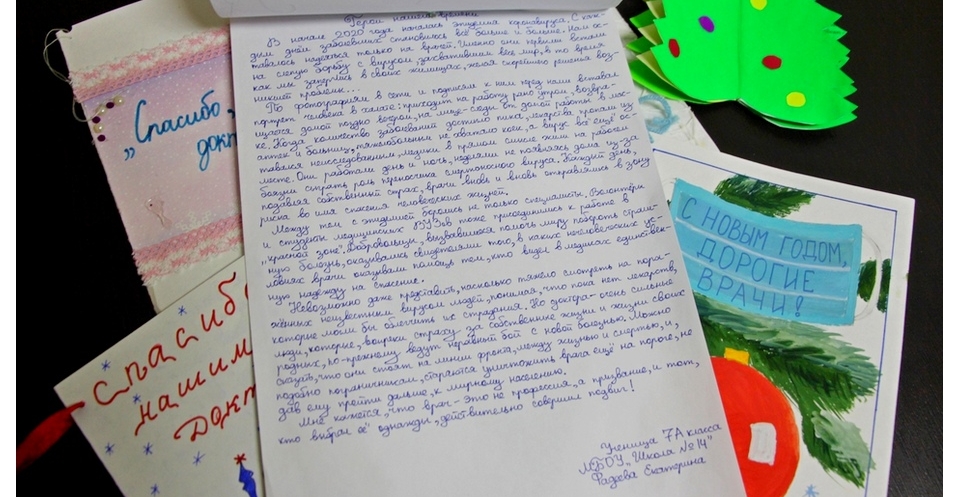 Герои нашего времени
В начале 2020 года началась эпидемия коронавируса. С каж-
дым днём заболевших становилось всё больше и больше. Нам ос-
тавалось надеяться только на врачей. Именно они первыми встали
на слепую борьбу с вирусом, захватившим весь мир, в то время
как мы заперлись в своих жилищах, желая скорейшего решения воз-
никшей проблемы...
По фотографиям в сети и подписям к ним перед нами вставал
портрет человека в халате: приходит на работу рано утром, возвра-
щается домой поздно вечером, на лице следы от долгой работы в мас-
ке. Когда количество заболеваний достигло пика, лекарства пропали из
аптек и больниц, тяжелобольным не хватало коек, а вирус всё ещё ос-
тавался неисследованным, медики в прямом смысле жили на рабочем
месте. Они работали день и ночь, неделями не появляясь дома из-за
боязни сыграть роль переносчика смертоносного вируса. Каждый день,
подавляя собственный страх, врачи вновь и вновь отправлялись в зону
риска во имя спасения человеческих жизней.
Между тем с эпидемией боролись не только специалисты. Волонтёры
и студенты медицинских ВУЗов тоже присоединились к работе в
„красной зоне". Добровольцы, вызвавшиеся помочь миру побороть страш-
ную болезнь, оказывались свидетелями того, в каких нечеловеческих ус-
ловиях врачи оказывали помощь тем, кто видел в медиках единствен-
ную надежду на спасение.
Невозможно даже представить, насколько тяжело смотреть на пора-
жённых неизвестным вирусом людей, понимая, что пока нет лекарств,
которые могли бы облегчить их страдания. Но доктора - очень сильные
люди, которые, вопреки страху за собственные жизни и жизни своих
родных, по-прежнему ведут неравный бой с новой болезнью. Можно
сказать, что они стоят на линии фронта, между жизнью и смертью, и,
подобно пограничникам, стараются уничтожить врага ещё на пороге, не
дав ему пройти дальше, к мирному населению.
Мне кажется, что врач - это не профессия, а призвание, и тот,
кто выбрал её однажды, действительно совершил подвиг!
Ученица 7А класса
МБОУ „Школа №14"
Фадеева Екатерина
„Спасибо,
докт
Спасибо
нашим
докт
С НОВЫМ ГОДОМ,
ДОРОГИЕ
ВРАЧИ!